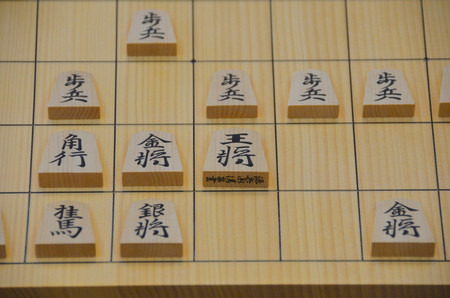 歩兵
歩兵
歩兵
歩兵
歩兵
角行
金将
王将
桂馬
銀将
金将